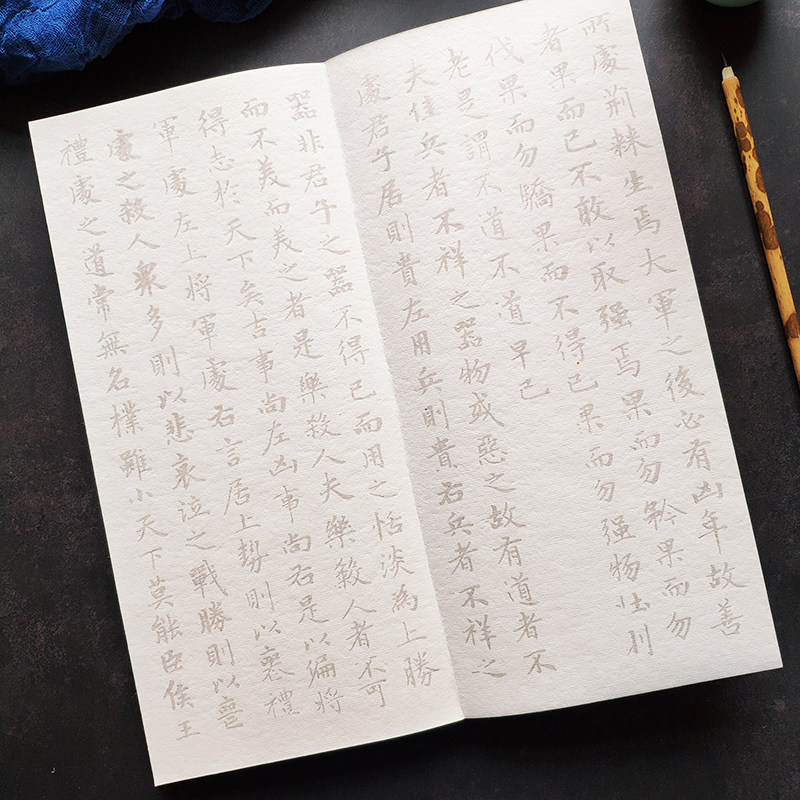 所處荊棘生焉大軍之後必有凶年故善
者果而已不敢以取强焉果而勿矜果而勿
伐果而勿驕果而不得已果而勿强物壯則
老是謂不道不道早已
夫佳兵者不祥之器物或惡之故有道者不
處君子居則貴左用兵則貴右兵者不祥之
器非君子之器不得已而用之恬淡為上勝
而不美而美之者是樂殺人夫樂殺人者不可
得志於天下矣吉事尚左凶事尚右是以偏將
軍處左上將軍處右言居上勢則以喪禮
處之殺人眾多則以悲哀泣之戰勝則以喪
禮處之道常無名樸雖小天下莫能臣侯王